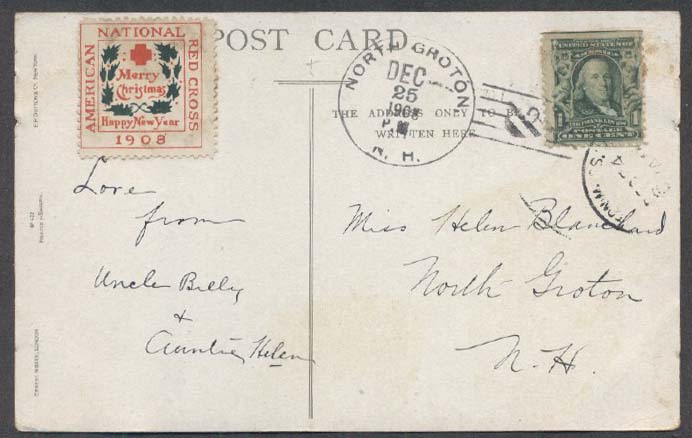 POST CARD
AMERICAN
NATIONAL
RED CROSS
Merry
Christmas
Happy New Year
1908
NORTH GROTON
DEC
25
1908
N. H.
THE ADDRESS ONLY TO BE
WRITTEN HERE
UNITED STATES OF
FRANKLIN
POSTAGE
1 ONE CENT 1
Love
from
Uncle Billy
&
Auntie Helen
Miss Helen Blanchard
North Groton
N. H.